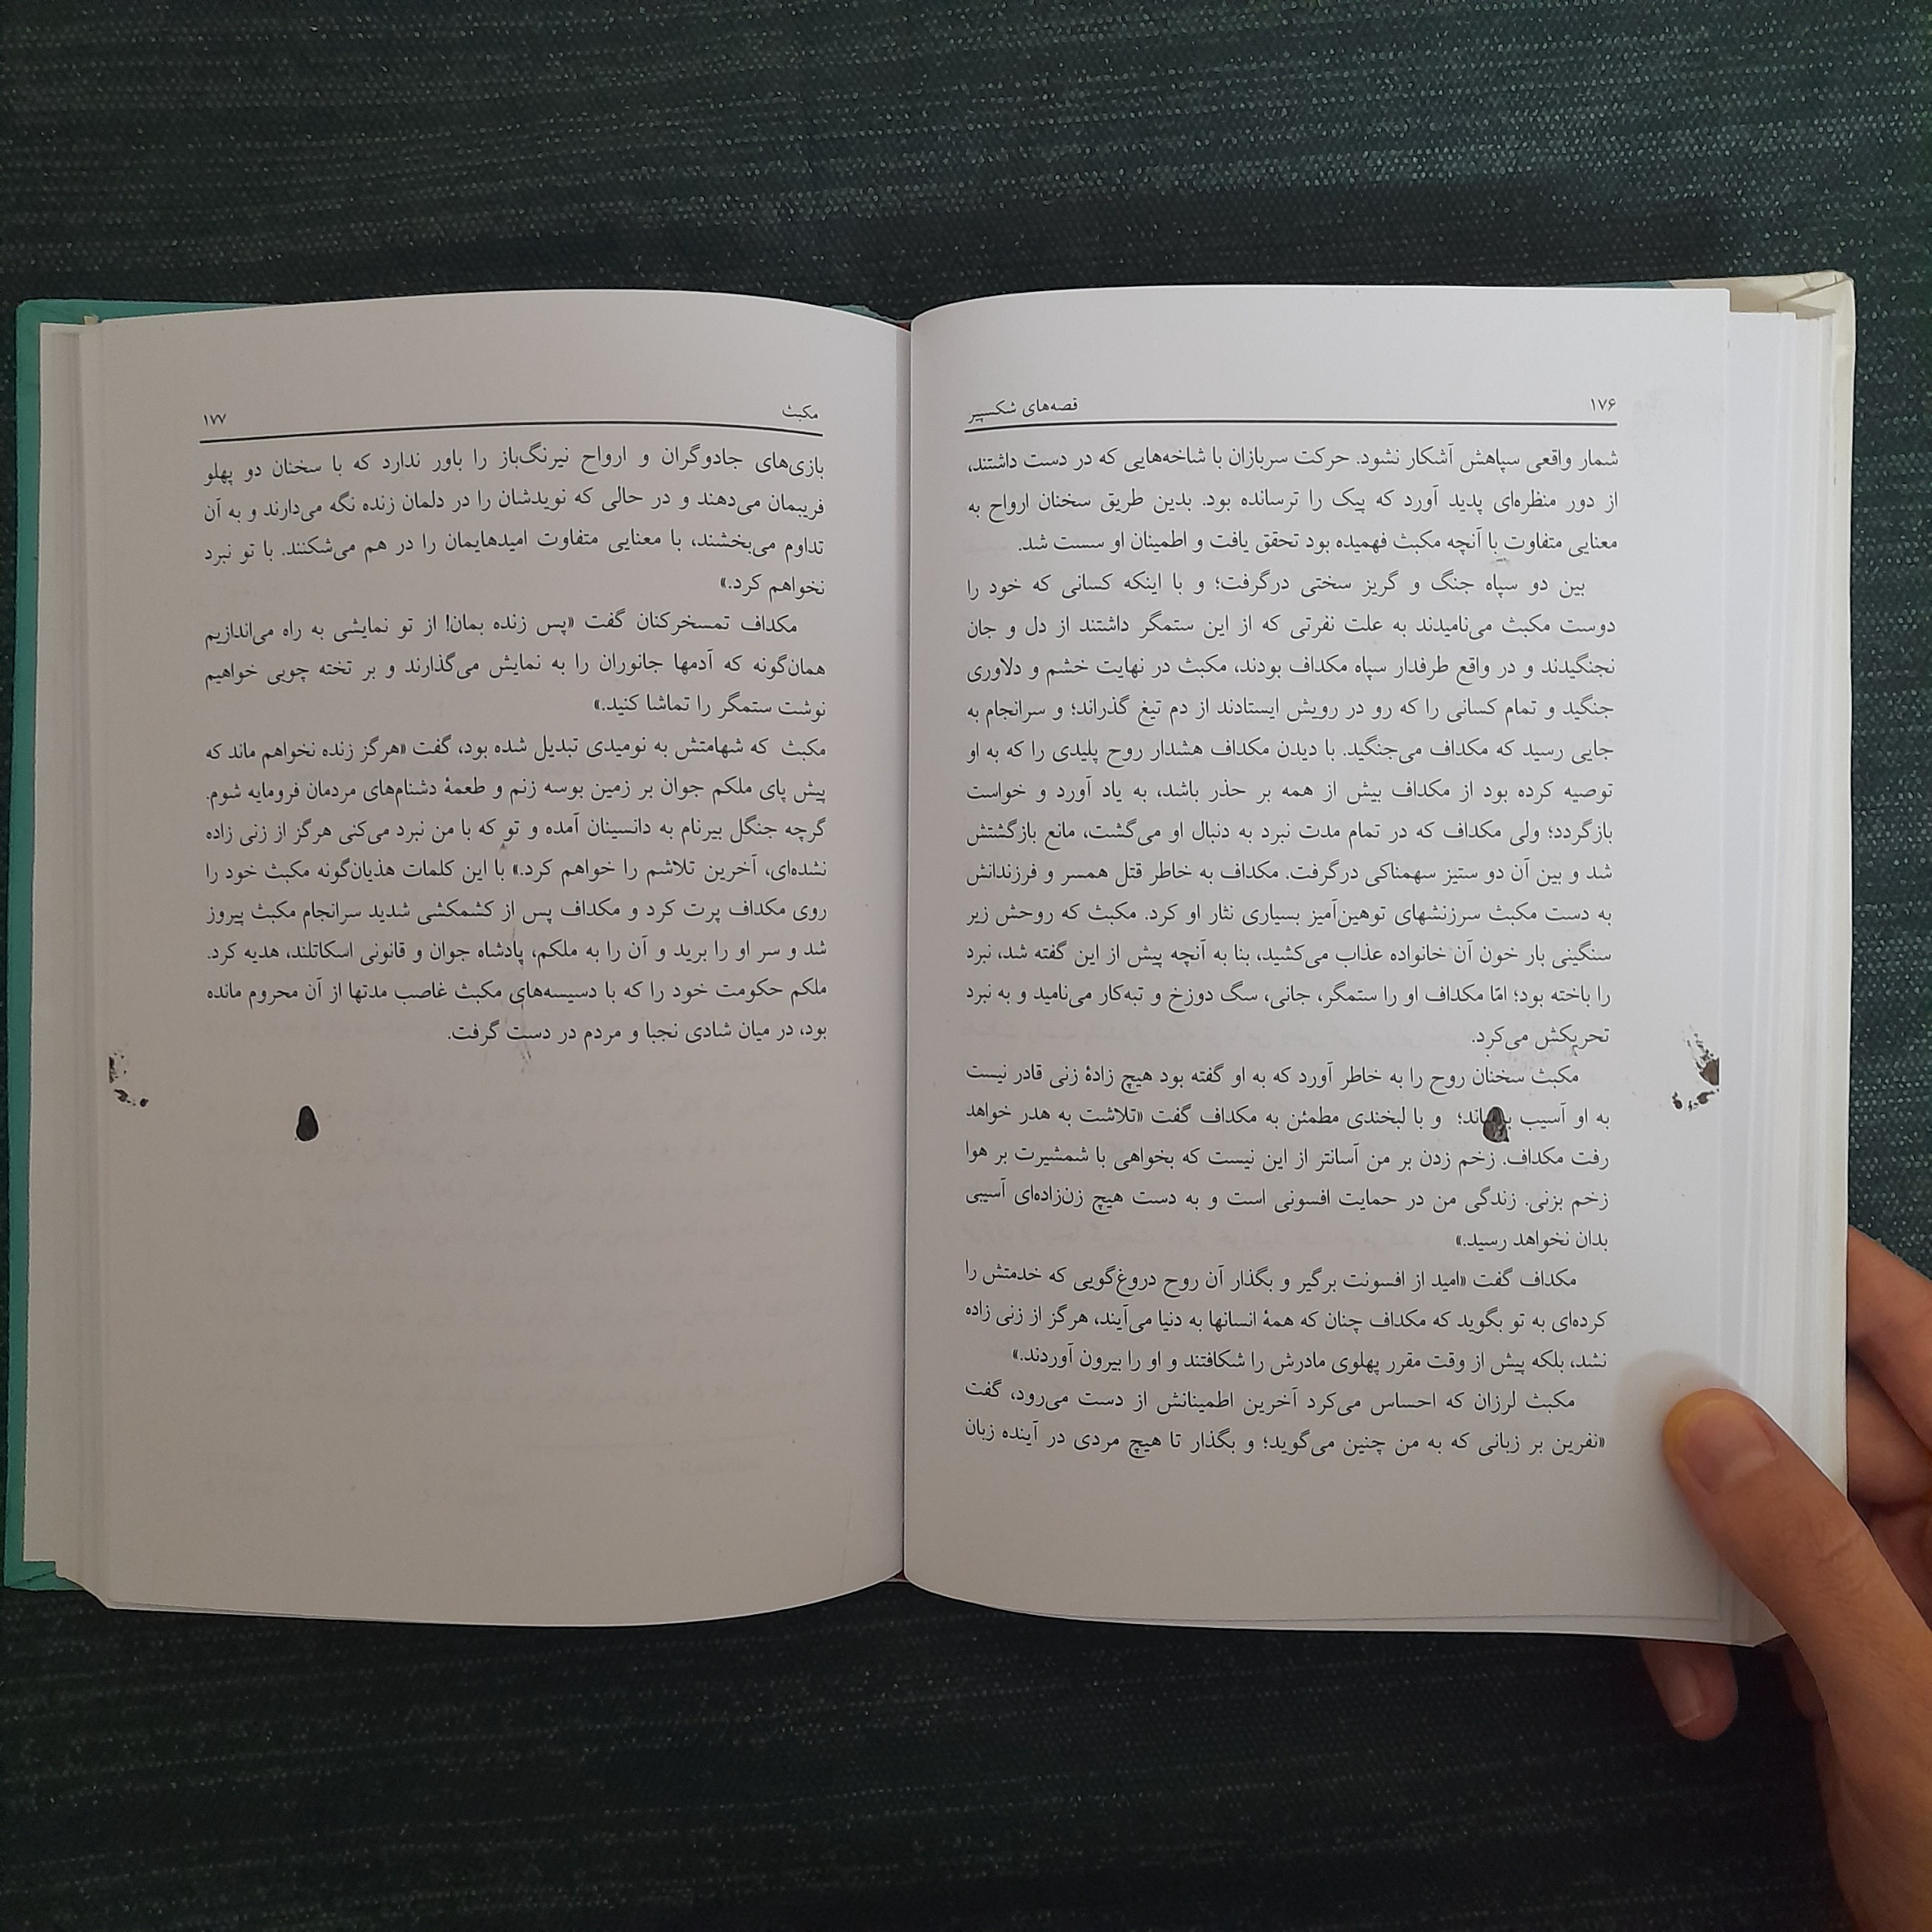 ۱۷۶
قصه‌های شکسپیر
شمار واقعی سپاهش آشکار نشود. حرکت سربازان با شاخه‌هایی که در دست داشتند،
از دور منظره‌ای پدید آورد که پیک را ترسانده بود. بدین طریق سخنان ارواح به
معنایی متفاوت با آنچه مکبث فهمیده بود تحقق یافت و اطمینان او سست شد.
بین دو سپاه جنگ و گریز سختی درگرفت؛ و با اینکه کسانی که خود را
دوست مکبث می‌نامیدند به علت نفرتی که از این ستمگر داشتند از دل و جان
نجنگیدند و در واقع طرفدار سپاه مکداف بودند، مکبث در نهایت خشم و دلاوری
جنگید و تمام کسانی را که رو در رویش ایستادند از دم تیغ گذراند؛ و سرانجام به
جایی رسید که مکداف می‌جنگید. با دیدن مکداف هشدار روح پلیدی را که به او
توصیه کرده بود از مکداف بیش از همه بر حذر باشد، به یاد آورد و خواست
بازگردد؛ ولی مکداف که در تمام مدت نبرد به دنبال او می‌گشت، مانع بازگشتش
شد و بین آن دو ستیز سهمناکی درگرفت. مکداف به خاطر قتل همسر و فرزندانش
به دست مکبث سرزنشهای توهین‌آمیز بسیاری نثار او کرد. مکبث که روحش زیر
سنگینی بار خون آن خانواده عذاب می‌کشید، بنا به آنچه پیش از این گفته شد، نبرد
را باخته بود؛ امّا مکداف او را ستمگر، جانی، سگ دوزخ و تبه‌کار می‌نامید و به نبرد
تحریکش می‌کرد.
مکبث سخنان روح را به خاطر آورد که به او گفته بود هیچ زادهٔ زنی قادر نیست
به او آسیب برساند؛ و با لبخندی مطمئن به مکداف گفت «تلاشت به هدر خواهد
رفت مکداف. زخم زدن بر من آسانتر از این نیست که بخواهی با شمشیرت بر هوا
زخم بزنی. زندگی من در حمایت افسونی است و به دست هیچ زن‌زاده‌ای آسیبی
بدان نخواهد رسید.»
مکداف گفت «امید از افسونت برگیر و بگذار آن روح دروغ‌گویی که خدمتش را
کرده‌ای به تو بگوید که مکداف چنان که همهٔ انسانها به دنیا می‌آیند، هرگز از زنی زاده
نشد، بلکه پیش از وقت مقرر پهلوی مادرش را شکافتند و او را بیرون آوردند.»
مکبث لرزان که احساس می‌کرد آخرین اطمینانش از دست می‌رود، گفت
«نفرین بر زبانی که به من چنین می‌گوید؛ و بگذار تا هیچ مردی در آینده زبان
مکبث
۱۷۷
بازی‌های جادوگران و ارواح نیرنگ‌باز را باور ندارد که با سخنان دو پهلو
فریبمان می‌دهند و در حالی که نویدشان را در دلمان زنده نگه می‌دارند و به آن
تداوم می‌بخشند، با معنایی متفاوت امیدهایمان را در هم می‌شکنند. با تو نبرد
نخواهم کرد.»
مکداف تمسخرکنان گفت «پس زنده بمان! از تو نمایشی به راه می‌اندازیم
همان‌گونه که آدمها جانوران را به نمایش می‌گذارند و بر تخته چوبی خواهیم
نوشت ستمگر را تماشا کنید.»
مکبث که شهامتش به نومیدی تبدیل شده بود، گفت «هرگز زنده نخواهم ماند که
پیش پای ملکم جوان بر زمین بوسه زنم و طعمهٔ دشنام‌های مردمان فرومایه شوم.
گرچه جنگل بیرنام به دانسینان آمده و تو که با من نبرد می‌کنی هرگز از زنی زاده
نشده‌ای، آخرین تلاشم را خواهم کرد.» با این کلمات هذیان‌گونه مکبث خود را
روی مکداف پرت کرد و مکداف پس از کشمکشی شدید سرانجام مکبث پیروز
شد و سر او را برید و آن را به ملکم، پادشاه جوان و قانونی اسکاتلند، هدیه کرد.
ملکم حکومت خود را که با دسیسه‌های مکبث غاصب مدتها از آن محروم مانده
بود، در میان شادی نجبا و مردم در دست گرفت.